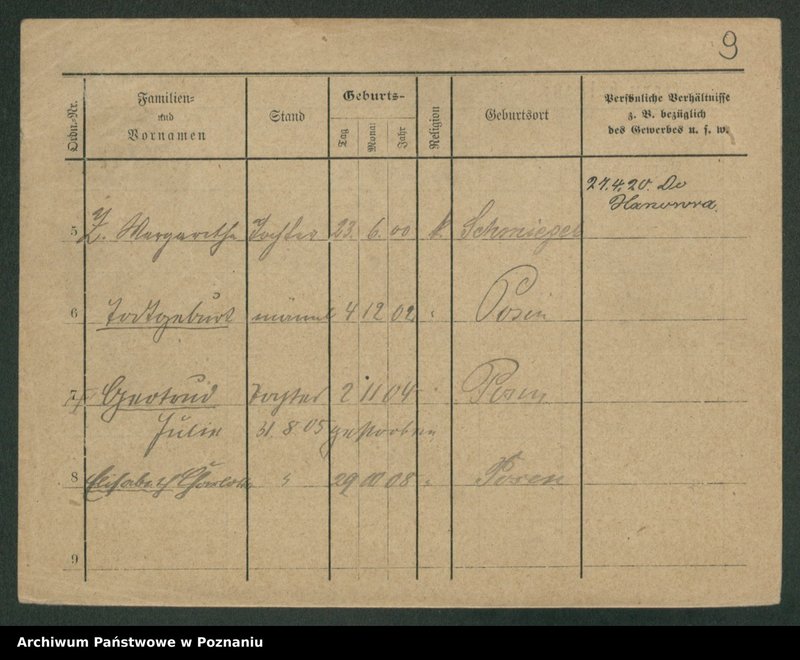 9
Ordn.-Nr.
Familien-
und
Vornamen
Stand
Geburts-
Tag
Monat
Jahr
Religion
Geburtsort
Persönliche Verhältnisse
z. B. bezüglich
des Gewerbes u. s. w.
27.4.20. Do
Hanowra
5 Margarethe Tochter 23. 6. 00 k. Schmiegel
6 Todtgeburt männl 4 12 02 " Posen
7 Gertrud Tochter 2 11 04 " Posen
Julie 31. 8 05 gestorben
8 Elisabeth Charlotte " 29 08 " Posen
9
Archiwum Państwowe w Poznaniu